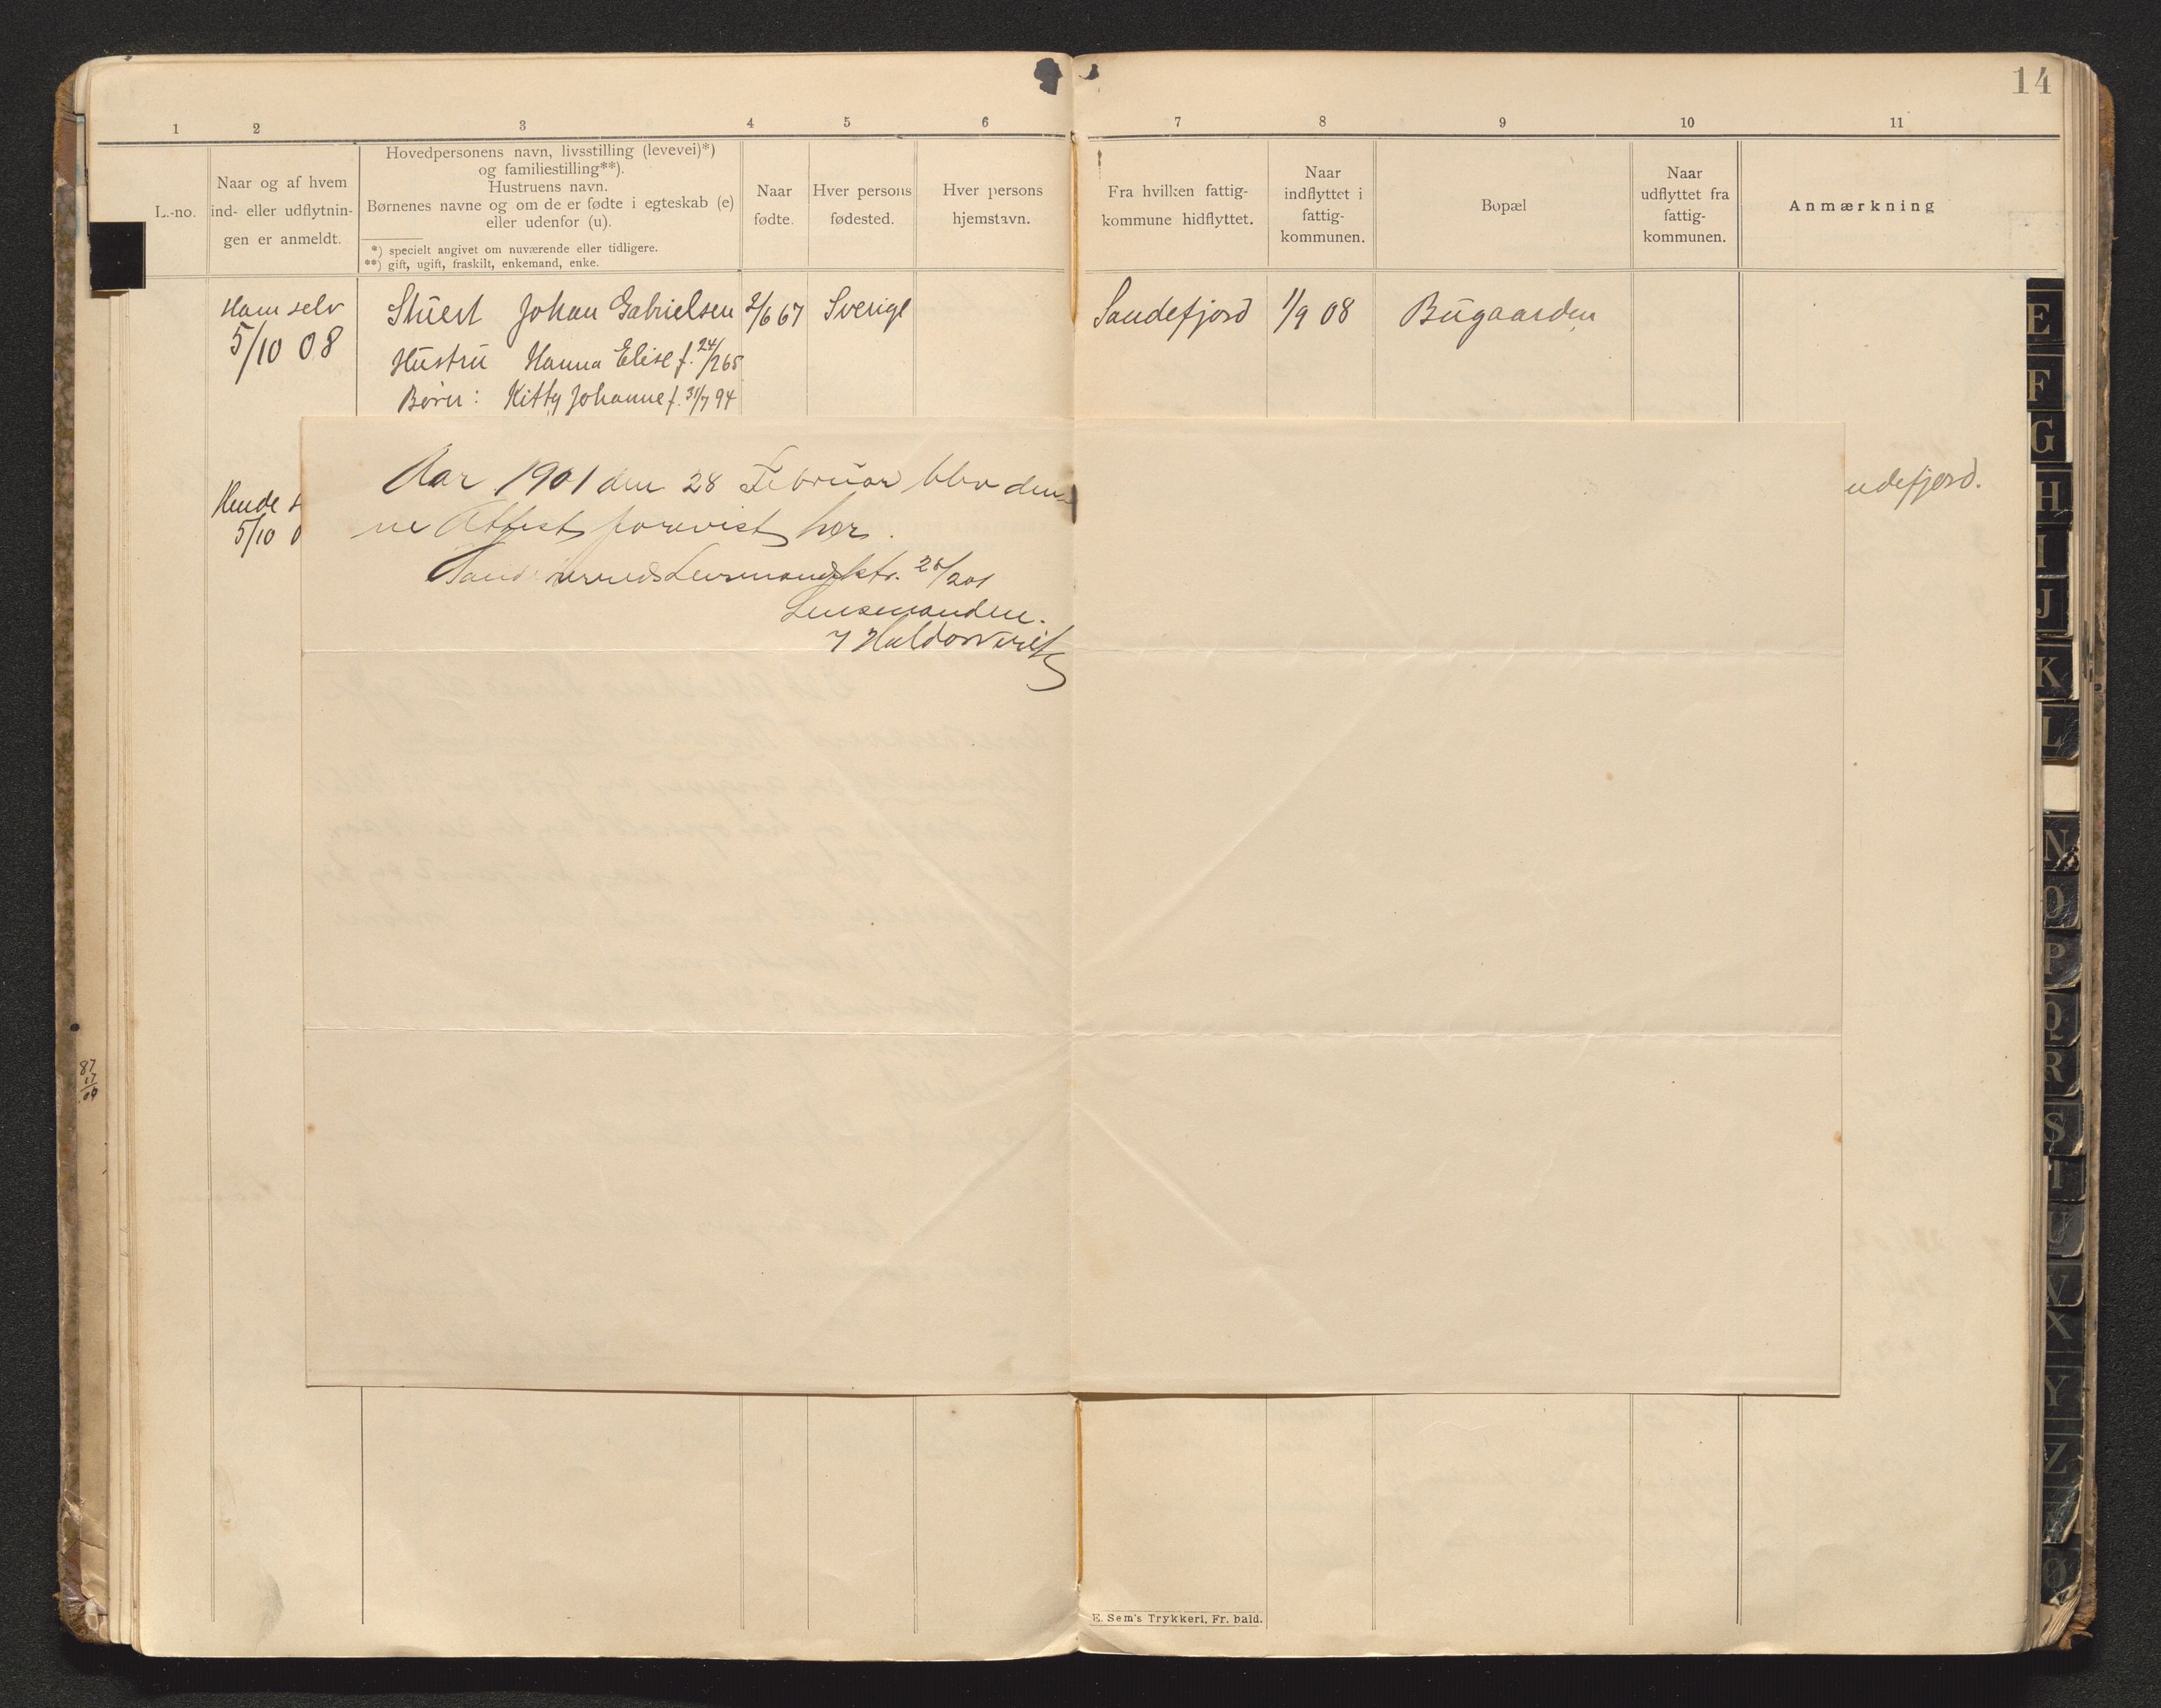 14
1 2 3 4 5 6 7 8 9 10 11
L.-no.
Naar og af hvem
ind- eller udflytnin-
gen er anmeldt.
Hovedpersonens navn, livsstilling (levevei)*)
og familiestilling**).
Hustruens navn.
Børnenes navne og om de er fødte i egteskab (e)
eller udenfor (u).
*) specielt angivet om nuværende eller tidligere.
**) gift, ugift, fraskilt, enkemand, enke.
Naar
fødte.
Hver persons
fødested.
Hver persons
hjemstavn.
Fra hvilken fattig-
kommune hidflyttet.
Naar
indflyttet i
fattig-
kommunen.
Bopæl
Naar
udflyttet fra
fattig-
kommunen.
Anmærkning
Ham selv
5/10 08
Johan Gabrielsen 2/6 67 Sverige Sandefjord 1/9 08 Bugaarden
Hustru Hanna Elise f. 24/2 65
Børn: Kitty Johanne f. 31/7 94
Hende s
5/10 0
udefjord.
Aar 1901 den 28 Februar blev den-
ne Attest forevist her.
Lensmandsktr. 28/2 01
Lensmanden.
87
17
E
F
G
H
I
J
K
L
N
O
P
Q
R
S
T
U
V
X
Y
Z
Ø
E. Sem's Trykkeri, Fr. hald.